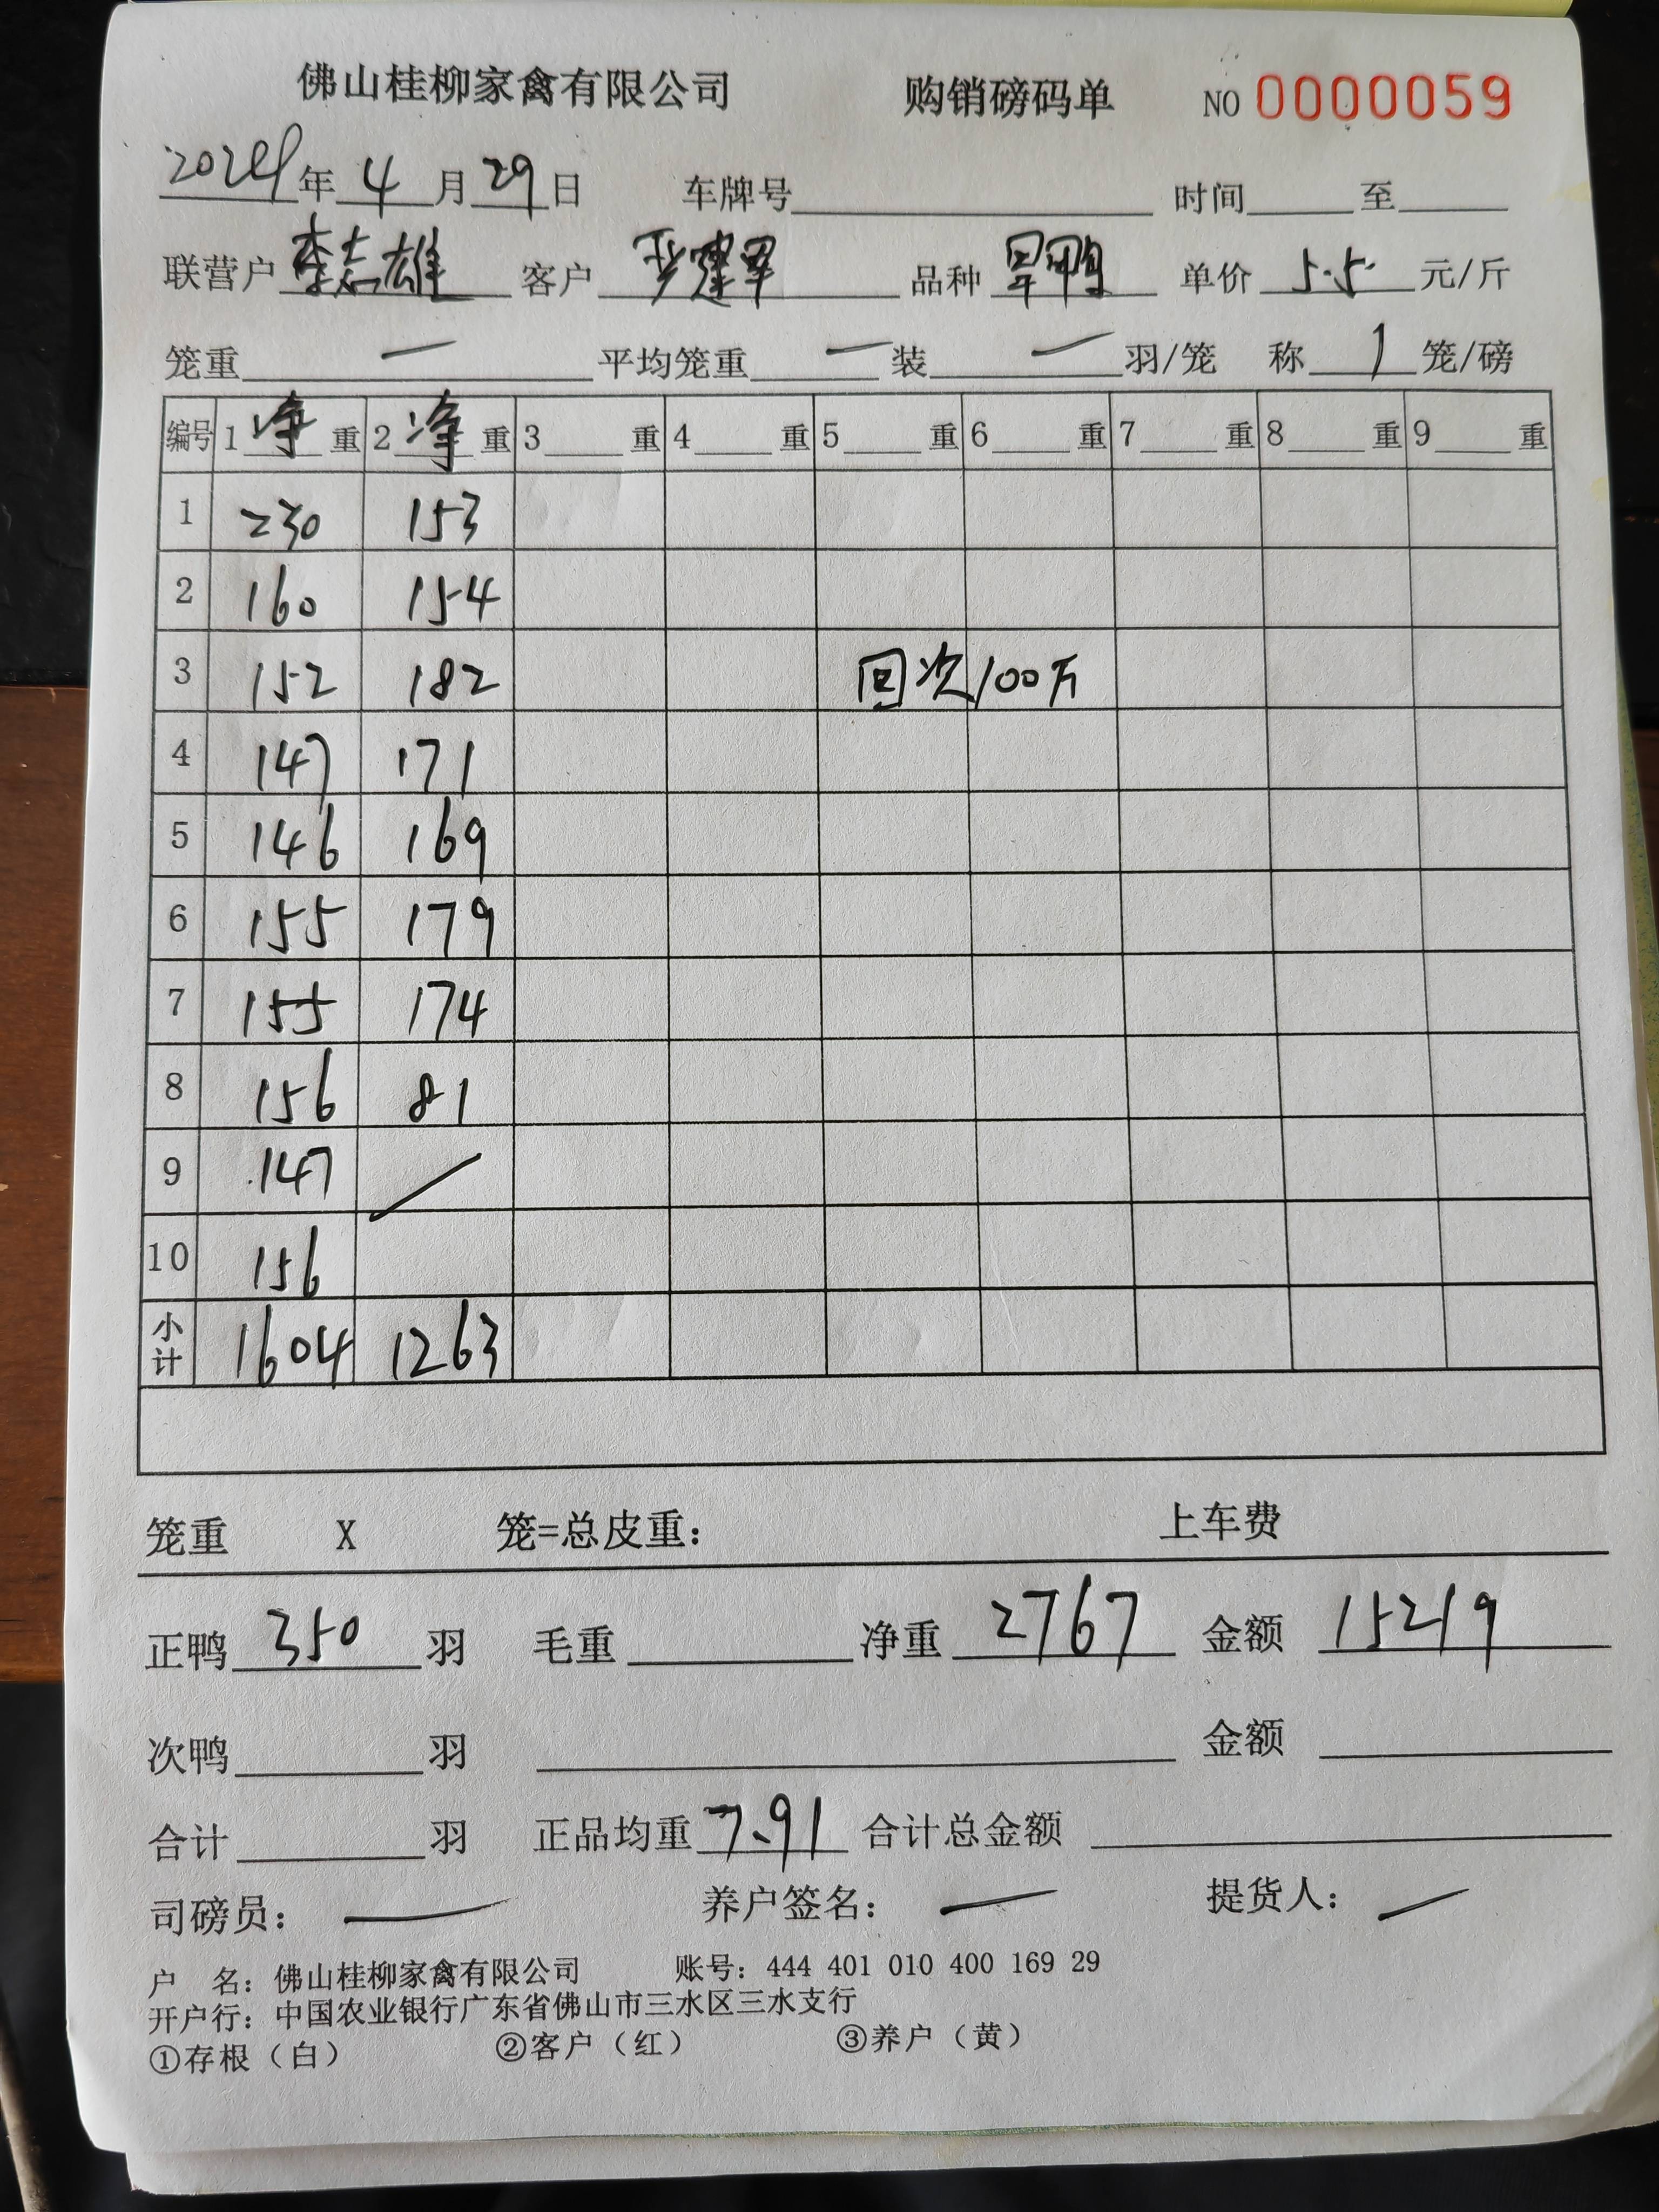 佛山桂柳家禽有限公司 购销磅码单 NO 0000059
2024年 4 月 29 日 车牌号 时间 至
联营户 李志雄 客户 严建军 品种 旱鸭 单价 5.5 元/斤
笼重 一 平均笼重 一 装 一 羽/笼 称 1 笼/磅
编号 1 净 重 2 净 重 3 重 4 重 5 重 6 重 7 重 8 重 9 重
1 230 153
2 160 154
3 152 182 回次100斤
4 147 171
5 146 169
6 155 179
7 155 174
8 156 81
9 147
10 156
小计 1604 1263
笼重 X 笼=总皮重: 上车费
正鸭 350 羽 毛重 净重 2767 金额 15219
次鸭 羽 金额
合计 羽 正品均重 7.91 合计总金额
司磅员: 一 养户签名: 一 提货人: 一
户 名: 佛山桂柳家禽有限公司 账号: 444 401 010 400 169 29
开户行: 中国农业银行广东省佛山市三水区三水支行
①存根（白） ②客户（红） ③养户（黄）